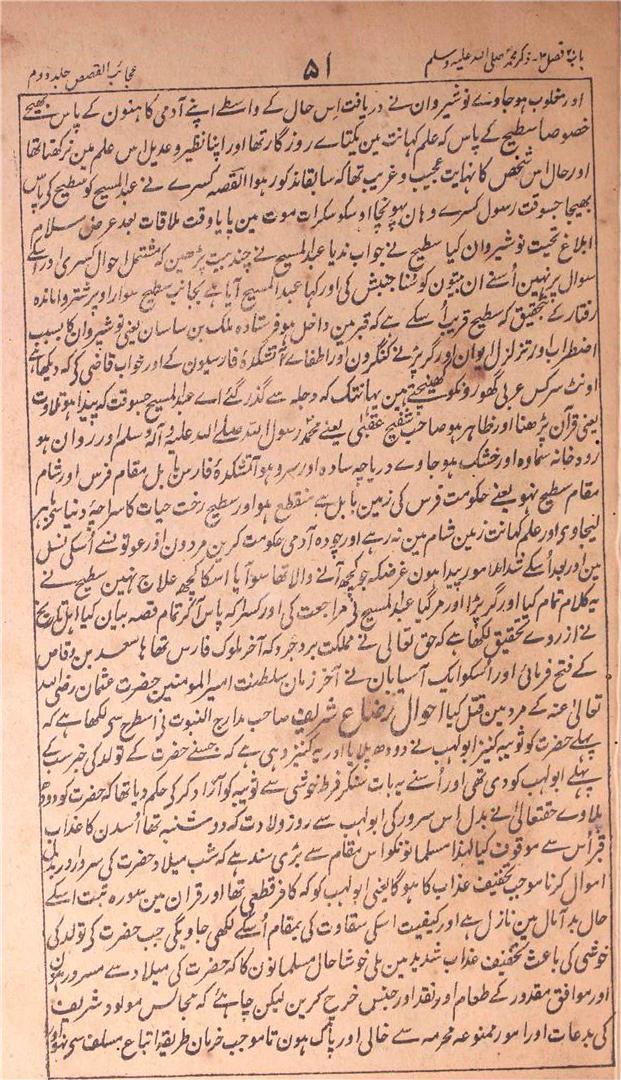 باب ۲ فصل ۲۔ ذکر محمد صلی اللہ علیہ وسلم
۵۱
عجائب القصص جلد دوم
اور مغلوب ہوجاوے نوشیروان نے دریافت اس حال کے واسطے اپنے آدمی کاہنون کے پاس بھیجے
خصوصاً سطیح کے پاس کہ علم کہانت مین یکتاے روزگار تھا اور اپنا نظیر و عدیل اس علم مین نرکھتا تھا
اور حال اس شخص کا نہایت عجیب و غریب تھا کہ سابقا مذکور ہوا القصہ کسرے نے عبدالمسیح کو سطیح کے پاس
بھیجا جسوقت رسول کسرے وہان پہونچا اوسکو سکرات موت مین پایا وقت ملاقات بعد عرض سلام
ابلاغ تحیت نوشیروان کیا سطیح نے جواب ندیا عبدالمسیح نے چند بیت پڑھین کہ مشتمل احوال کسری اور اسکے
سوال پر تہین اُسنے ان بیتون کو سُنا جنبش کی اور کہا عبدالمسیح آیا ہے بجانب سطیح سوار اوپر شتر واماندہ
رفتار کے بتحقیق کہ سطیح قریب اُسکے ہے کہ قبر مین داخل ہو فرستادہ ملک بن ساسان یعنی نوشیروان کا بسبب
اضطراب اور تزلزل ایوان اور گر پڑنے کنگرون اور اطفاے آتشکدۂ فارسیون کے اور خواب قاضی کے کہ دیکھا ہے
اونٹ سرکس عربی گھوڑونکو کھینچتے ہین یہانتک کہ دجلہ سے گذر گئے اے عبدالمسیح جسوقت کہ پیدا ہو تلاوت
یعنی قرآن پڑھنا اور ظاہر ہو صاحب یعنے محمد رسول اللہ صلے اللہ علیہ وآلہ وسلم اور روان ہو
رودخانہ سماوہ اور خشک ہوجاوے دریاچہ سادہ اور سرد ہو آتشکدۂ فارس بابل مقام فرس اور شام
مقام سطیح نہو یعنے حکومت فرس کی زمین بابل سے منقطع ہو اور سطیح رخت حیات کا سراچۂ دنیا سے باہر
لیجاوے اور علم کہانت زمین شام مین نہ رہے اور چودہ آدمی حکومت کرین مردون اور عورتونسے اُسکی نسل
مین اور بعد اُسکے شداید امور پیدا ہون غرضکہ جو کچھ آنے والا تھا سو آیا اسکا کچھ علاج نہین سطیح نے
یہ کلام تمام کیا اور گر پڑا اور مر گیا عبدالمسیح نے مراجعت کی اور کسرا کے پاس آکر تمام قصہ بیان کیا اہل تاریخ
نے ازروے تحقیق لکھا ہے کہ حق تعالی نے مملکت یزدجرد کہ آخر ملوک فارس تھا سعد بن وقاص
کے فتح فرمائی اور اُسکو ایک آسیابان نے آخر زمان سلطنت امیر المومنین حضرت عثمان رضی اللہ
تعالی عنہ کے مرو مین قتل کیا احوال رضاع شریف صاحب مدارج النبوت نے اسطرح سے لکھا ہے کہ
پہلے حضرت کو ثویبہ کنیز ابولہب نے دودھ پلایا اور یہ کنیز وہی ہے کہ جسنے حضرت کے تولد کی خبر سب کے
پہلے ابولہب کو دی تھی اور اُسنے یہ بات سنکر فرط خوشی سے ثویبہ کو آزاد کر کے حکم دیا تھا کہ حضرت کو دودھ
پلاوے حقتعالیٰ نے بدل اس سرور کی ابولہب سے روز ولادت کہ دوشنبہ تھا اُسدن کا عذاب
قبر اُس سے موقوف کیا لہذا مسلمانونکو اس مقام سے بڑی سند ہے کہ شب میلاد حضرت کی سرور اور بذل
اموال کرنا موجب تخفیف عذاب کا ہوگا یعنی ابولہب کو کہ کافر قطعی تھا اور قران مین سورہ تبت اسکے
حال بدآمال مین نازل ہے اور کیفیت اسکی شقاوت کی بمقام اُسکے لکھی جاویگی جب حضرت کے تولد کی
خوشی کی باعث تخفیف عذاب شدید مین ملی خوشا حال مسلمانون کا کہ حضرت کی میلاد سے مسرور ہون
اور موافق مقدور کے طعام اور نقد اور جنس خرچ کرین لیکن چاہئے کہ مجالس مولود شریف
کی بدعات اور امور ممنوعہ محرمہ سے خالی اور پاک ہون تا موجب حرمان طریقہ اتباع سلف سے نہو اور